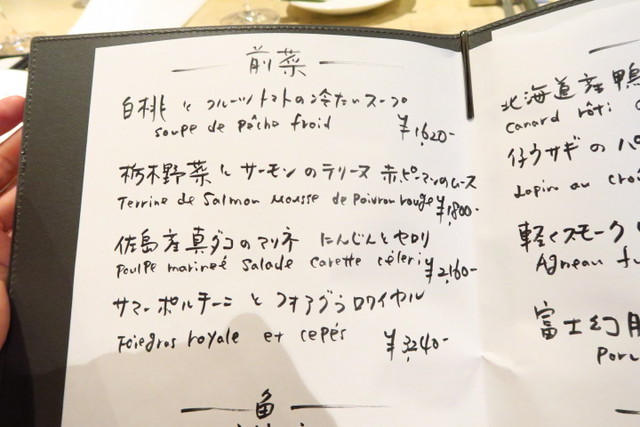 前菜
白桃とフルーツトマトの冷たいスープ
soupe de pêche froid ¥1,620-
栃木野菜とサーモンのテリーヌ 赤ピーマンのムース
Terrine de Salmon mousse de poivron rouge ¥1,800-
佐島産真ダコのマリネ にんじんとセロリ
Poulpe marineé Salade carette céleri ¥2,160-
サマーポルチーニとフォアグラロワイヤル
Foiegros royale et cepés ¥3,240-
魚
北海道産鴨
Canard rôti
仔ウサギのパ
Lapin au cro
軽くスモーク
Agneau fu
富士幻豚
Porc